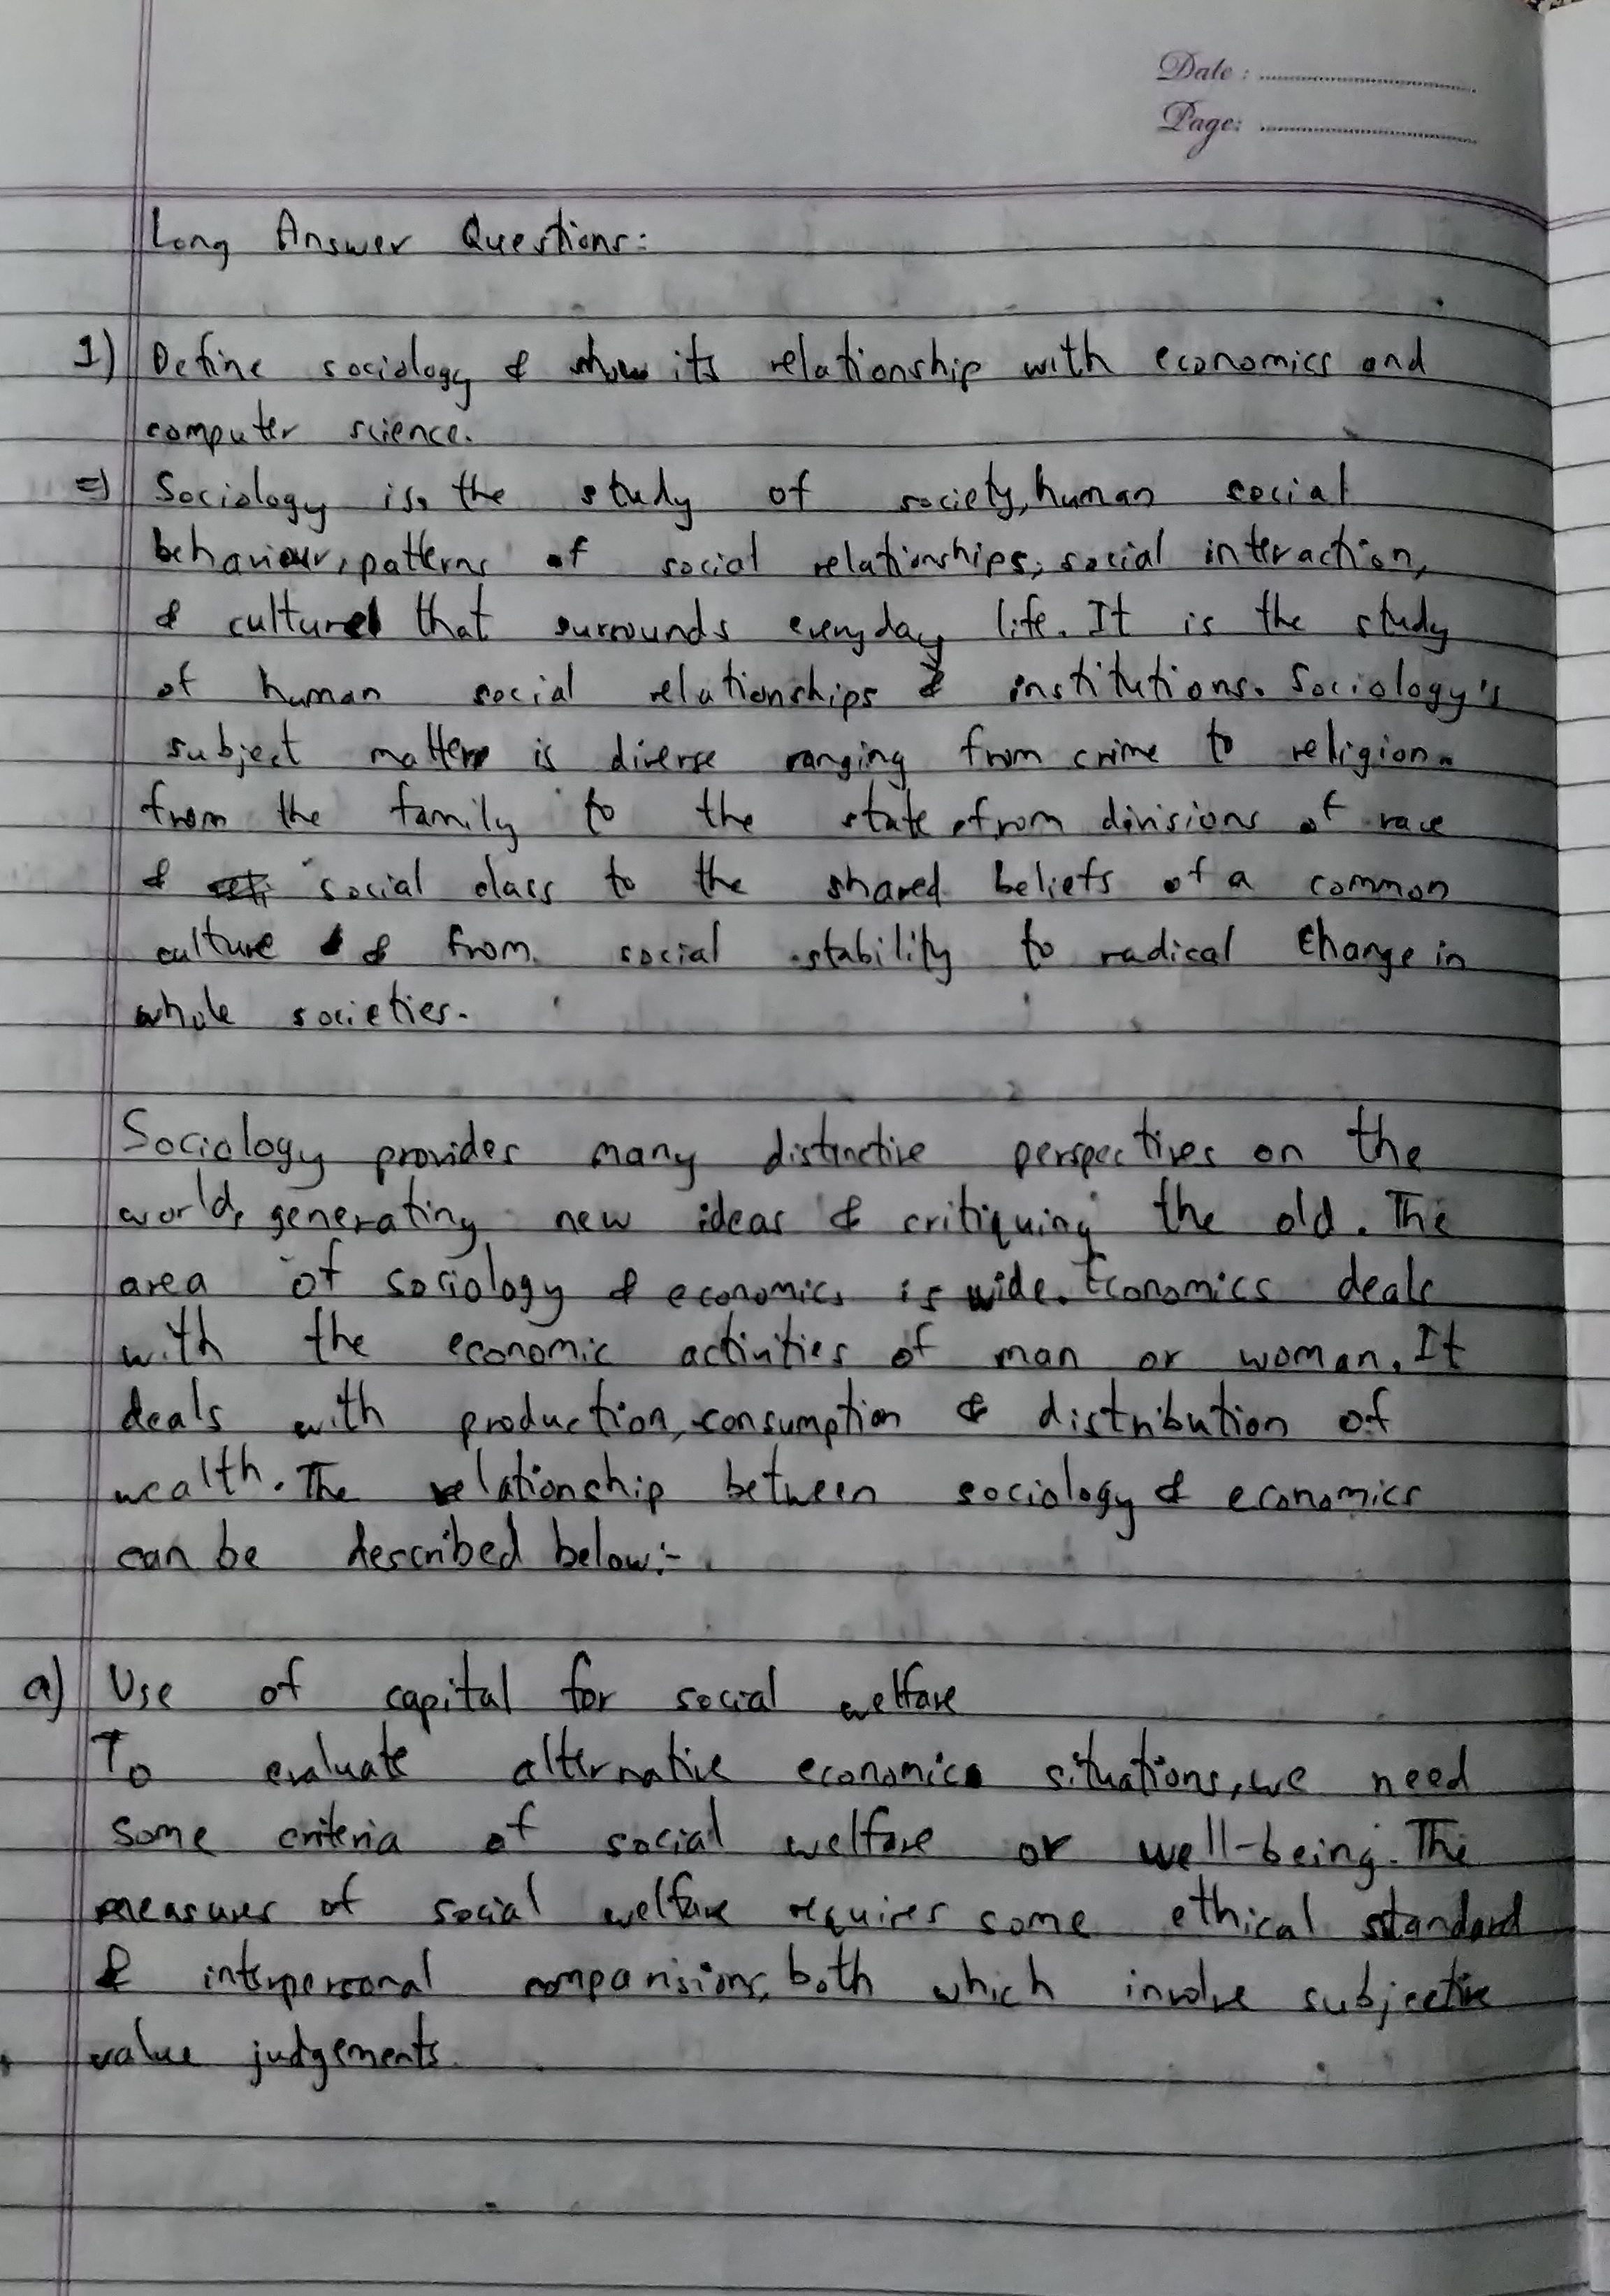 Date :
Page:
Long Answer Questions:
1) Define sociology & show its relationship with economics and
computer science.
=> Sociology is the study of society, human social
behaviour, patterns of social relationships, social interaction,
& culture that surrounds everyday life. It is the study
of human social relationships & institutions. Sociology's
subject matter is diverse ranging from crime to religion.
from the family to the state, from divisions of race
& social class to the shared beliefs of a common
culture & from social stability to radical change in
whole societies.
Sociology provides many distinctive perspectives on the
world, generating new ideas & critiquing the old. The
area of sociology & economics is wide. Economics deals
with the economic activities of man or woman. It
deals with production, consumption & distribution of
wealth. The relationship between sociology & economics
can be described below:-
a) Use of capital for social welfare
To evaluate alternative economic situations, we need
some criteria of social welfare or well-being. The
measures of social welfare requires some ethical standard
& interpersonal comparisions, both which involve subjective
value judgements.